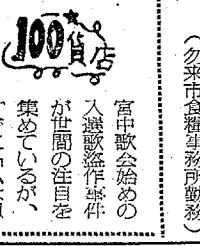 (勿来市食糧事務所勤務)
100貨店
宮中歌会始めの
入選歌盗作事件
が世間の注目を
集めているが、